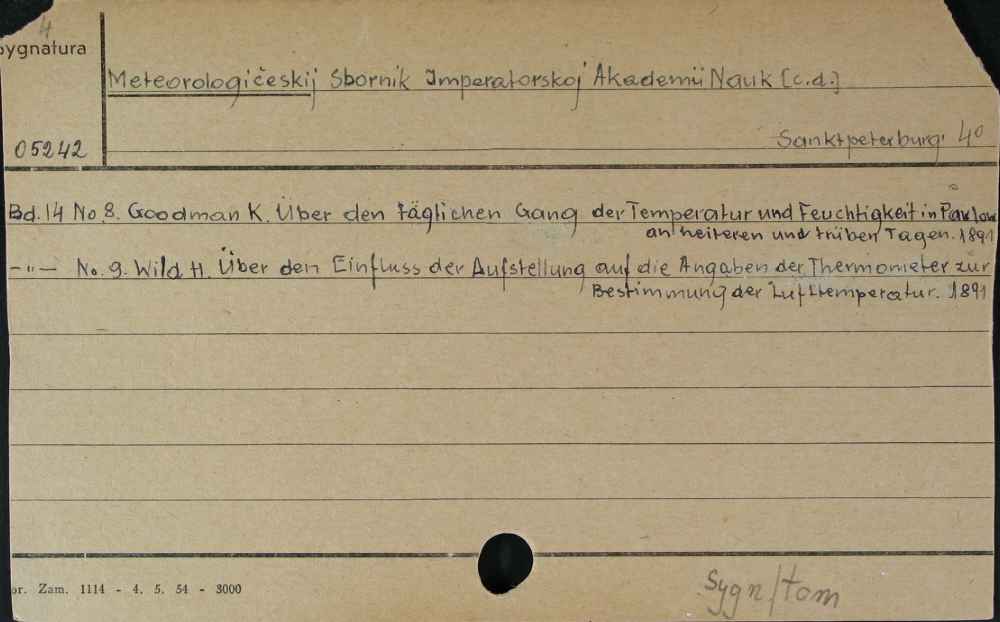 4
Sygnatura
Meteorologičeskij Sbornik Imperatorskoj Akademii Nauk [c.d.]
05242
Sanktpeterburg. 4°
Bd. 14 No 8. Goodman K. Über den täglichen Gang der Temperatur und Feuchtigkeit in Pawlow
an heiteren und trüben Tagen. 1891
–"– No. 9. Wild H. Über den Einfluss der Aufstellung auf die Angaben der Thermometer zur
Bestimmung der Lufttemperatur. 1891
or. Zam. 1114 - 4. 5. 54 - 3000
sygn/tom